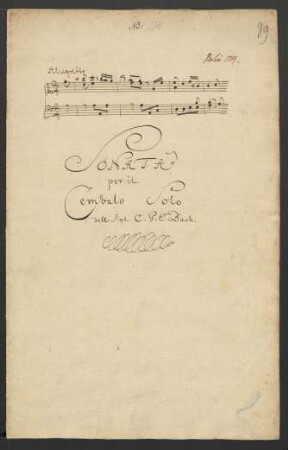 89
Allegretto
SONATA
per il
Cembalo Solo
dell Sigr. C. P. E. Bach.